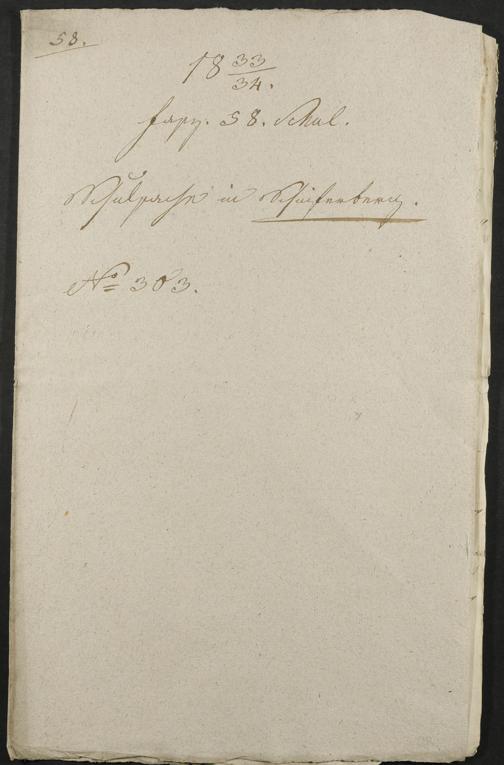 58.
18 33/34.
fasz. 58. Schul.
Schulsache in Schieferberg.
No 303.